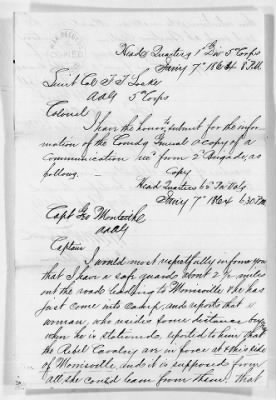 Head Quarters 1st Div 5th Corps
Jany 7th 1864 8 P.M.
Lieut Col F. T. Locke
AAG 5th Corps
Colonel
I have the honor to submit for the infor
mation of the Comdg General a copy of a
communication rec'd from 2d Brigade, as
follows. — Copy
Head Quarters 62d Pa Vols
Jany 7th 1864 6.30 P.M.
Capt Geo Monteith
AAAG
Captain
I would most respectfully inform you
that I have a safe guard about 2 1/2 miles
out the road leading to Morrisville who has
just come into Camp, and reports that a
woman, who resides some distance beyond
where he is stationed, reported to him that
the Rebel Cavalry are in force at this side
of Morrisville, and it is supposed from
all she could learn from them, that